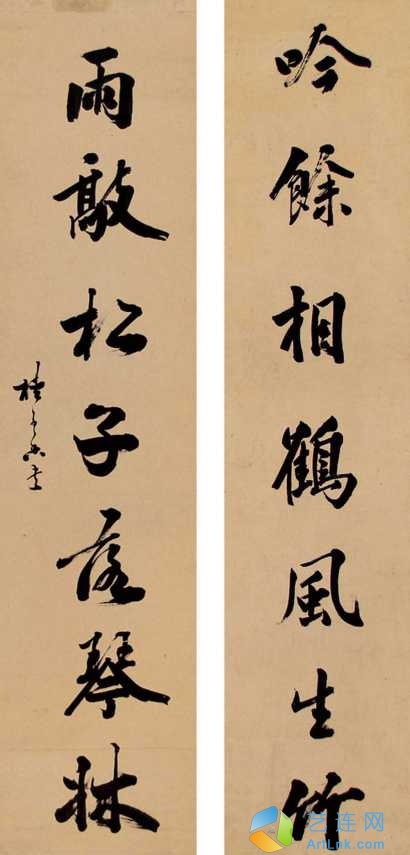 吟餘相鶴風生竹
雨敲松子落琴牀
艺连网
ArtLnk.com